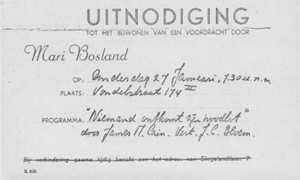 UITNODIGING
TOT HET BIJWONEN VAN EEN VOORDRACHT DOOR
Mari Bosland
OP: Donderdag 27 Januari, 7.30 u. n.m.
PLAATS: Vondelstraat 174 III
PROGRAMMA: "Niemand ontkomt zijn noodlot"
door James M. Cain. Vert. J.C. Bloem.
Bij verhindering gaarne tijdig bericht aan het adres: van